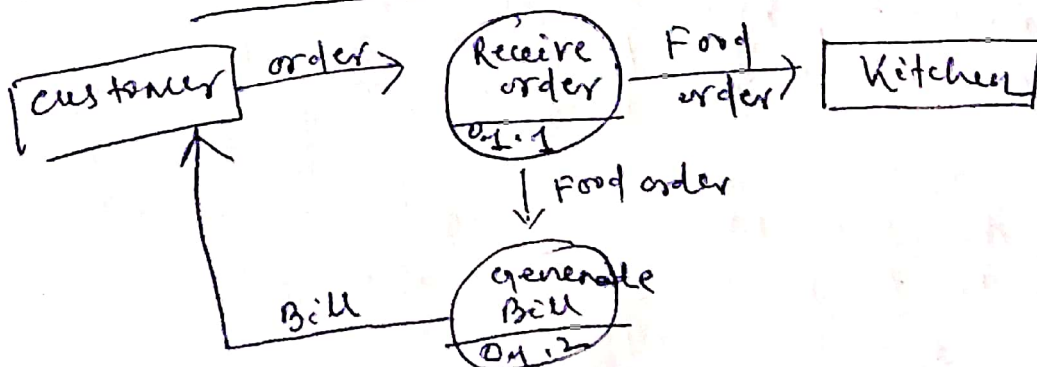 customer
order
Receive
order
0.1.1
Food
order
Kitchen
Food order
Generate
Bill
0.1.2
Bill